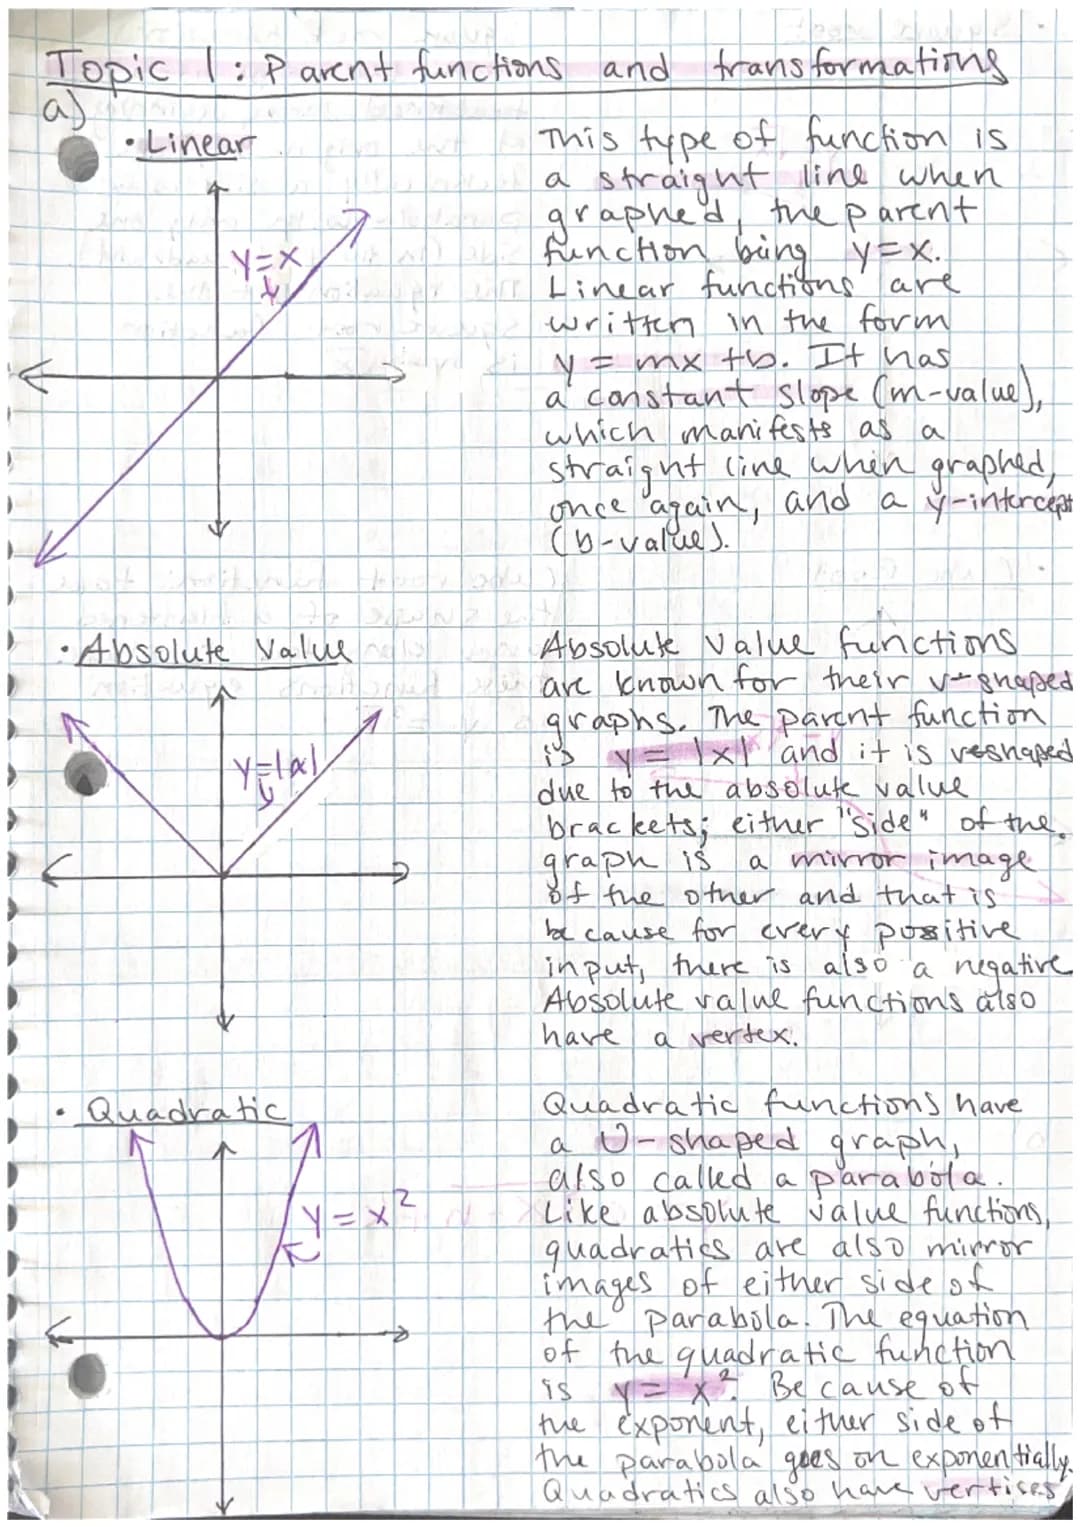 Topic 1: Parent functions and transformations
a)
• Linear
y=x
This type of function is
a straight line when
graphed, the parent
function being y=x.
Linear functions are
written in the form
y = mx +b. It has
a constant slope (m-value),
which manifests as a
straight line when graphed,
once again, and a y-intercept
(b-value).
• Absolute Value
y=|x|
Absolute value functions
are known for their v-shaped
graphs. The parent function
is y = |x| and it is v-shaped
due to the absolute value
brackets; either "side" of the
graph is a mirror image
of the other and that is
because for every positive
input, there is also a negative
Absolute value functions also
have a vertex.
• Quadratic
y = x²
Quadratic functions have
a U-shaped graph,
also called a parabola.
Like absolute value functions,
quadratics are also mirror
images of either side of
the parabola. The equation
of the quadratic function
is y = x². Because of
the exponent, either side of
the parabola goes on exponentially.
Quadratics also have vertises